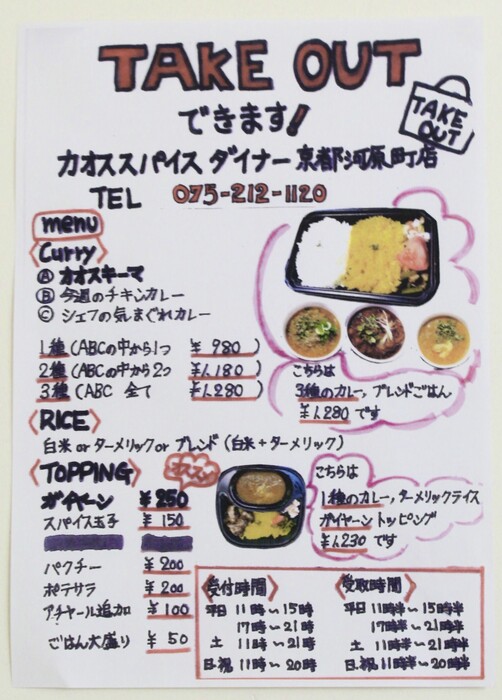 TAKE OUT
できます!
TAKE
OUT
カオススパイス ダイナー 京都河原町店
TEL 075-212-1120
menu
Curry
Ⓐ カオスキーマ
Ⓑ 今週のチキンカレー
Ⓒ シェフの気まぐれカレー
1種(ABCの中から1つ ¥980)
2種(ABCの中から2つ ¥1,180)
3種(ABC 全て ¥1,280)
こちらは
3種のカレー、ブレンドごはん
¥1,280 です
RICE
白米 or ターメリック or ブレンド(白米+ターメリック)
TOPPING
オススメ
ガイヤーン ¥250
スパイス玉子 ¥150
パクチー ¥200
ポテサラ ¥200
アチャール追加 ¥100
ごはん大盛り ¥50
こちらは
1種のカレー、ターメリックライス
ガイヤーントッピング
¥1,230 です
受付時間
平日 11時~15時
17時~21時
土 11時~21時
日・祝 11時~20時
受取時間
平日 11時半~15時半
17時半~21時半
土 11時半~21時半
日・祝 11時半~20時半